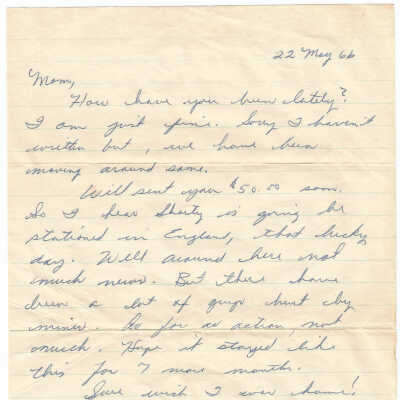 22 May 66
Mom,
How have you been lately?
I am just fine. Sorry I haven't
written but, we have been
moving around some.
Will sent your $50.00 soon.
So I hear Shorty is going be
stationed in England, that lucky
day. Well around here not
much news. But there have
been a lot of guys hurt by
mines. As for as action not
much. Hope it stayed like
this for 7 more months.
Sure wish I was home!